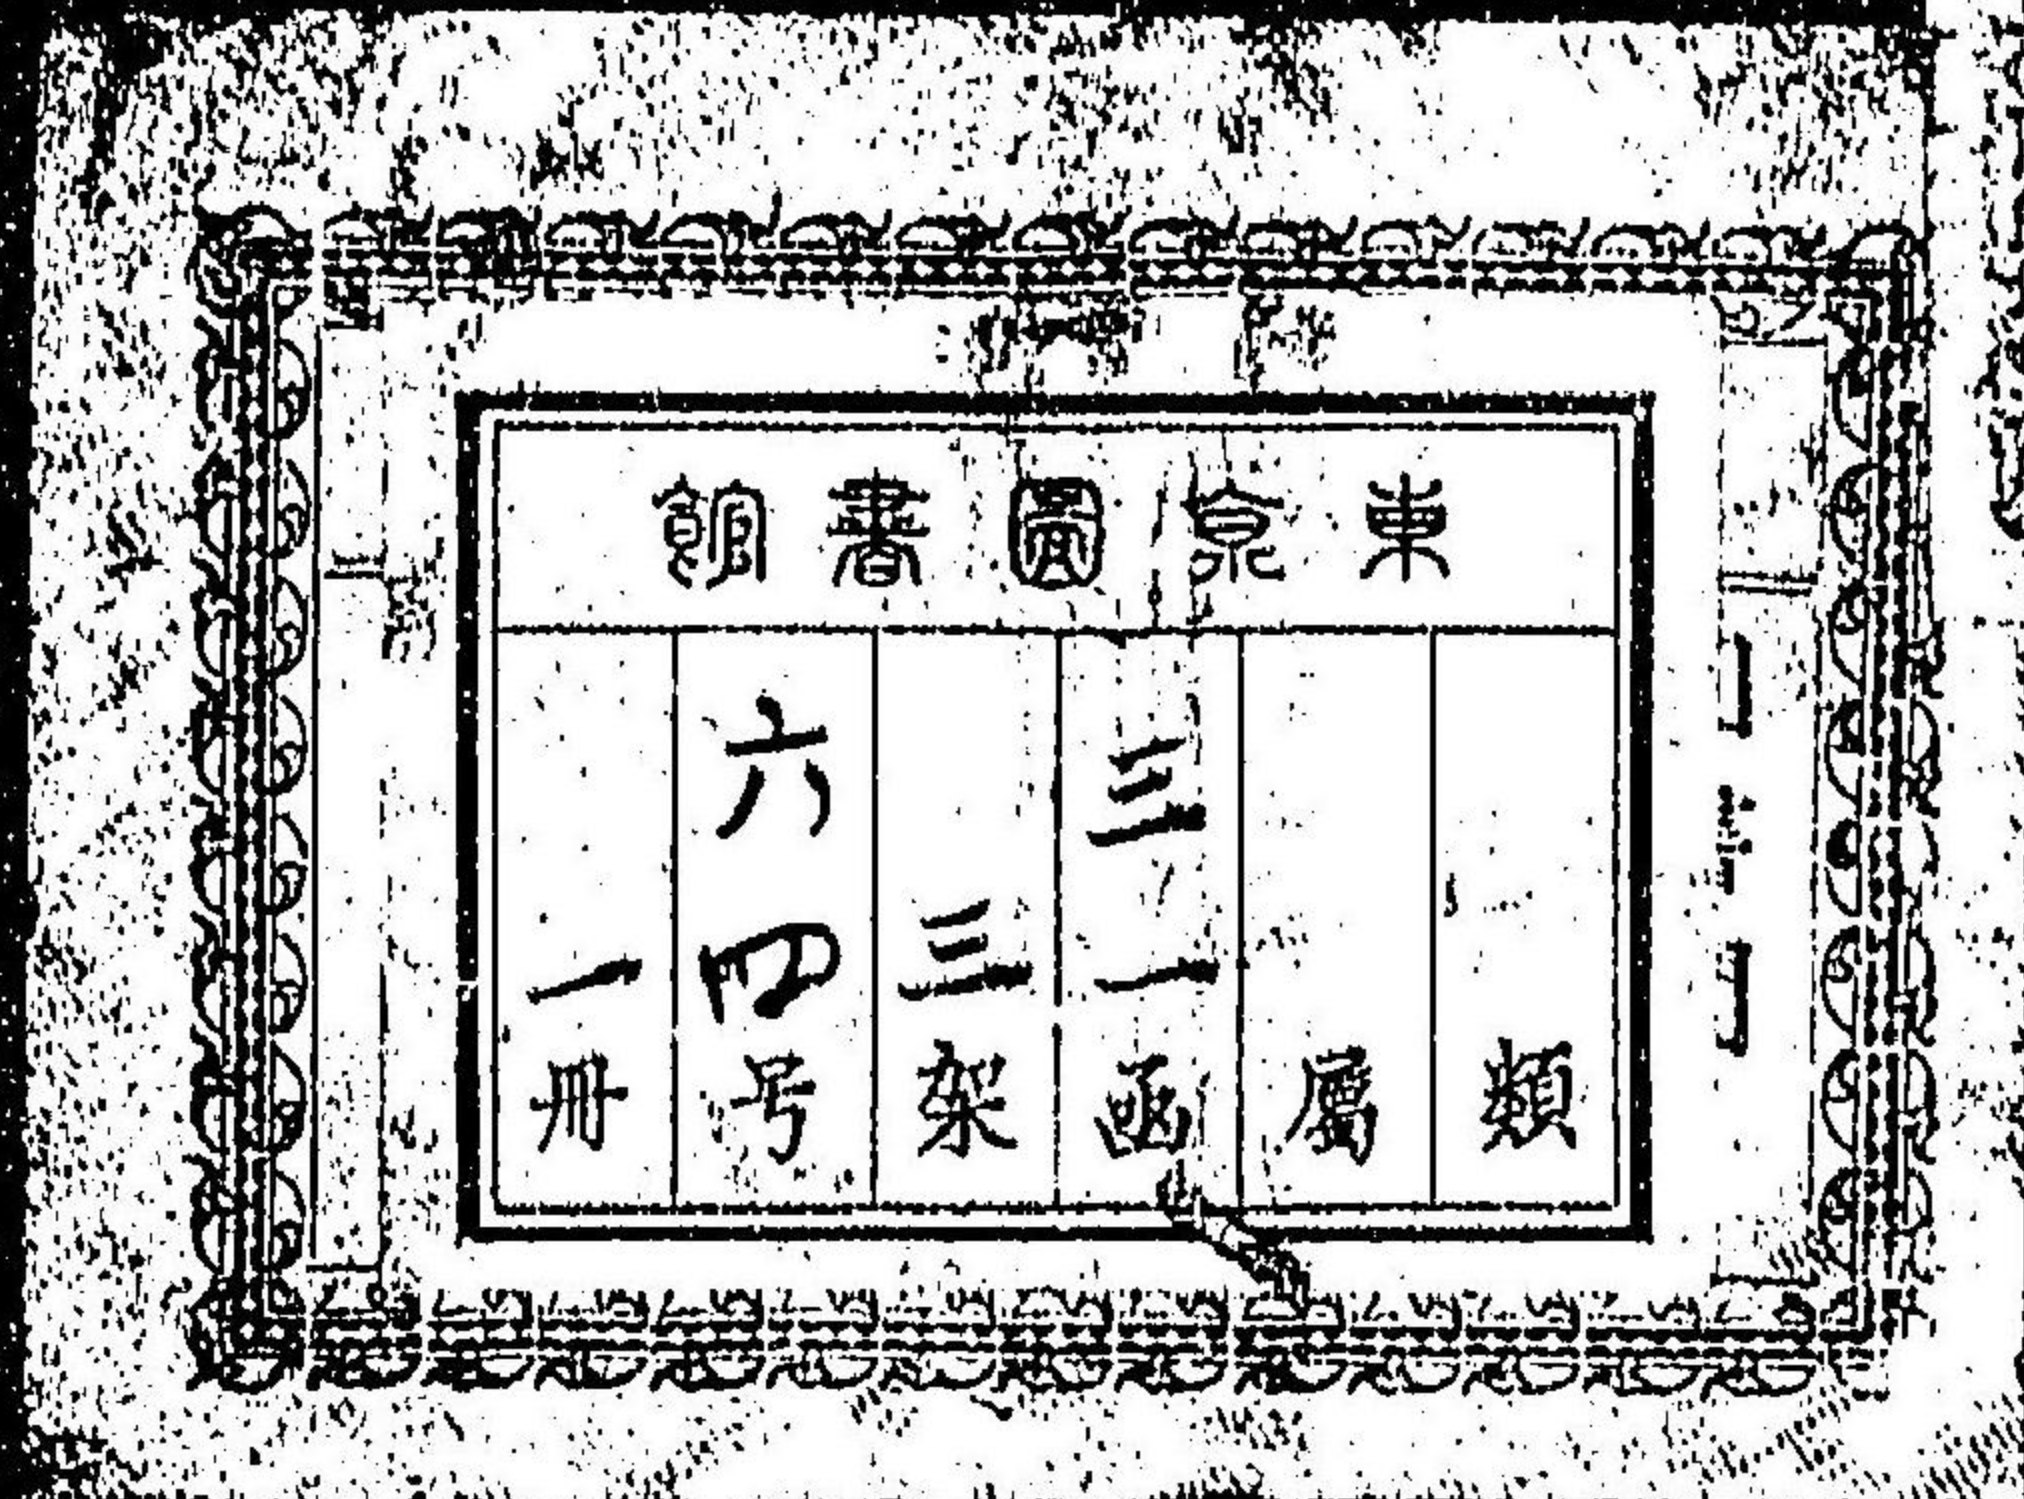 東京圖書館
類
屬
三一函
三架
六四号
一冊